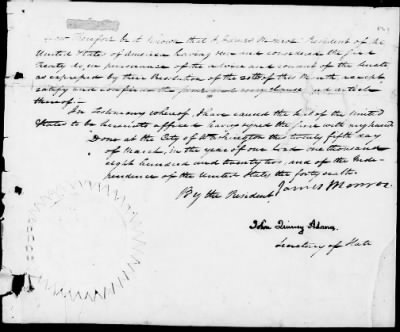 Now Therefore be it known that I James Monroe President of the
United States of America having seen and considered the said
Treaty do, in pursuance of the advice and consent of the Senate
as expressed by their Resolution of the 20th of this Month accept
ratify and confirm the same and every clause and article
thereof.—
In testimony whereof, I have caused the seal of the United
States to be hereunto affixed and have signed the same with my hand
Done at the City of Washington the twenty fifth day
of March, in the year of our Lord One thousand
eight hundred and twenty two, and of the Inde-
pendence of the United States the forty sixth.
By the President James Monroe
John Quincy Adams
Secretary of State